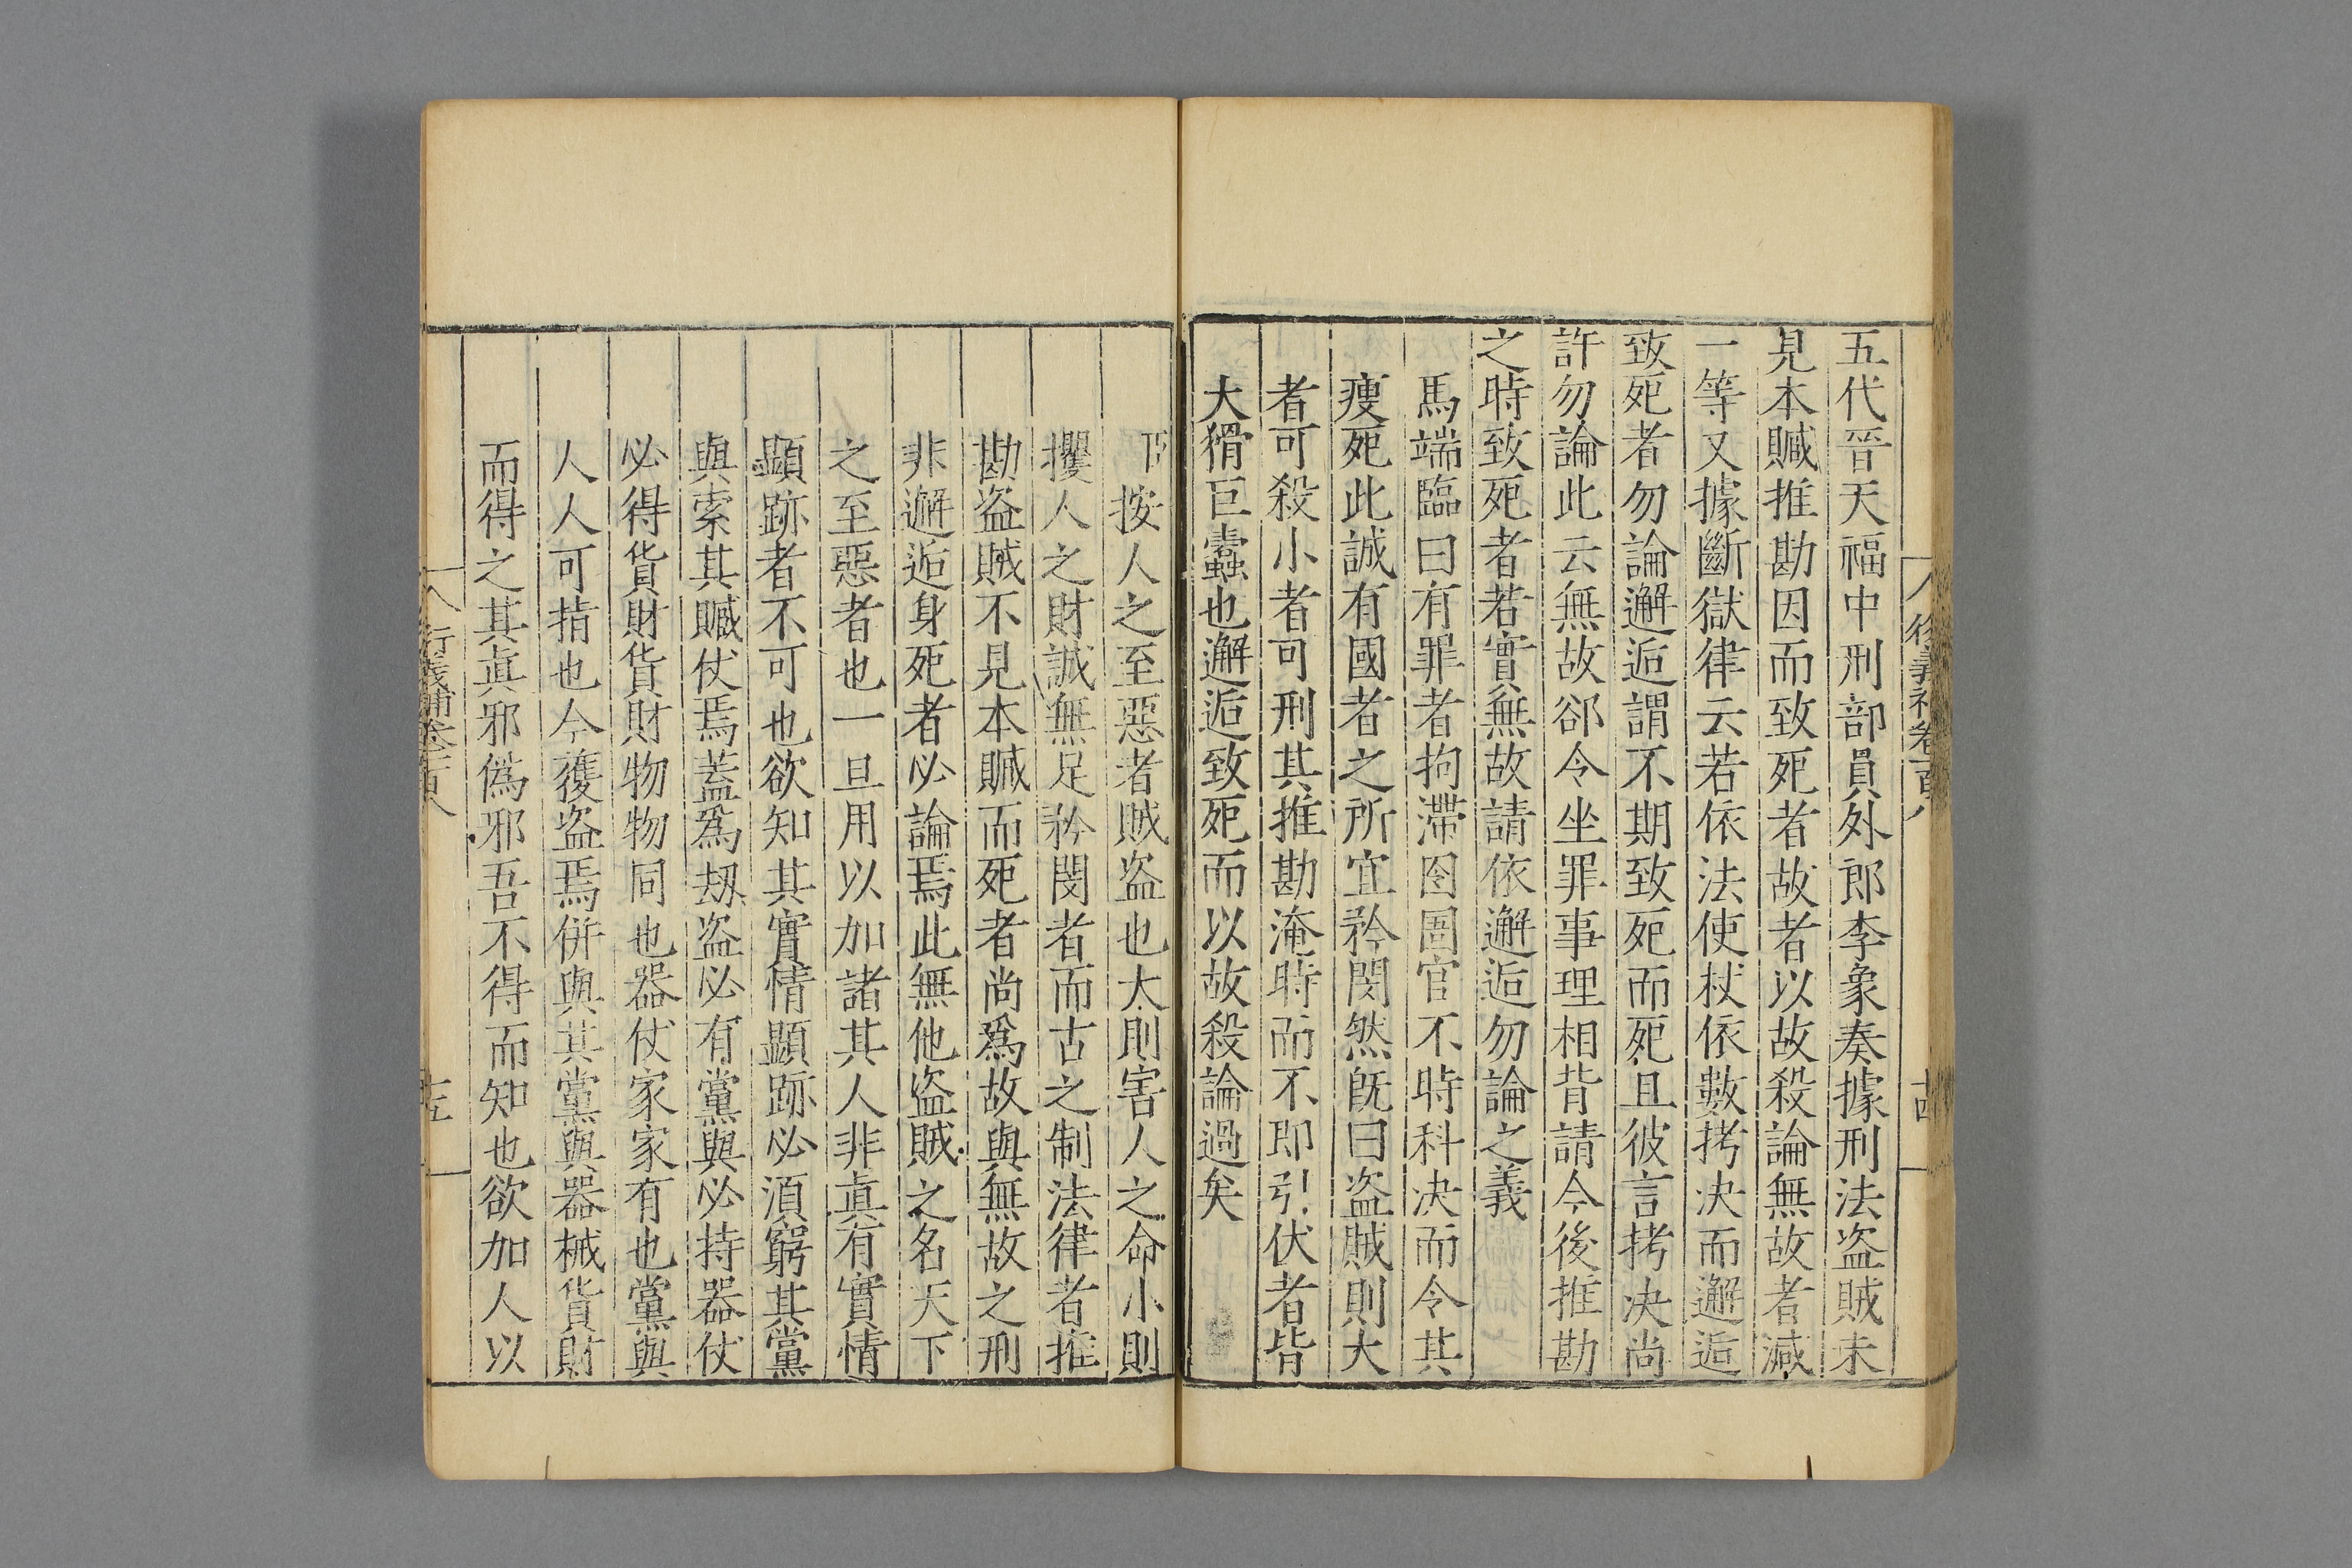 五代晉天福中刑部員外郎李象奏據刑法盜賊未
見本贓推勘因而致死者故者以故殺論無故者減
一等又據斷獄律云若依法使杖依數拷決而邂逅
致死者勿論邂逅謂不期致死而死且彼言拷決尚
許勿論此云無故郤令坐罪事理相背請今後推勘
之時致死者若實無故請依邂逅勿論之義
馬端臨曰有罪者拘滯囹圄官不時科決而令其
瘐死此誠有國者之所宜矜閔然旣曰盜賊則大
者可殺小者可刑其推勘淹時而不即引伏者皆
大猾巨蠹也邂逅致死而以故殺論過矣
按人之至惡者賊盜也大則害人之命小則
攫人之財誠無足矜閔者而古之制法律者推
勘盜賊不見本贓而死者尚爲故與無故之刑
非邂逅身死者必論焉此無他盜賊之名天下
之至惡者也一旦用以加諸其人非眞有實情
顯跡者不可也欲知其實情顯跡必須窮其黨
與索其贓仗焉蓋爲刼盜必有黨與必持器仗
必得貨財貨財物物同也器仗家家有也黨與
人人可指也今獲盜焉併與其黨與器械貨財
而得之其眞邪僞邪吾不得而知也欲加人以